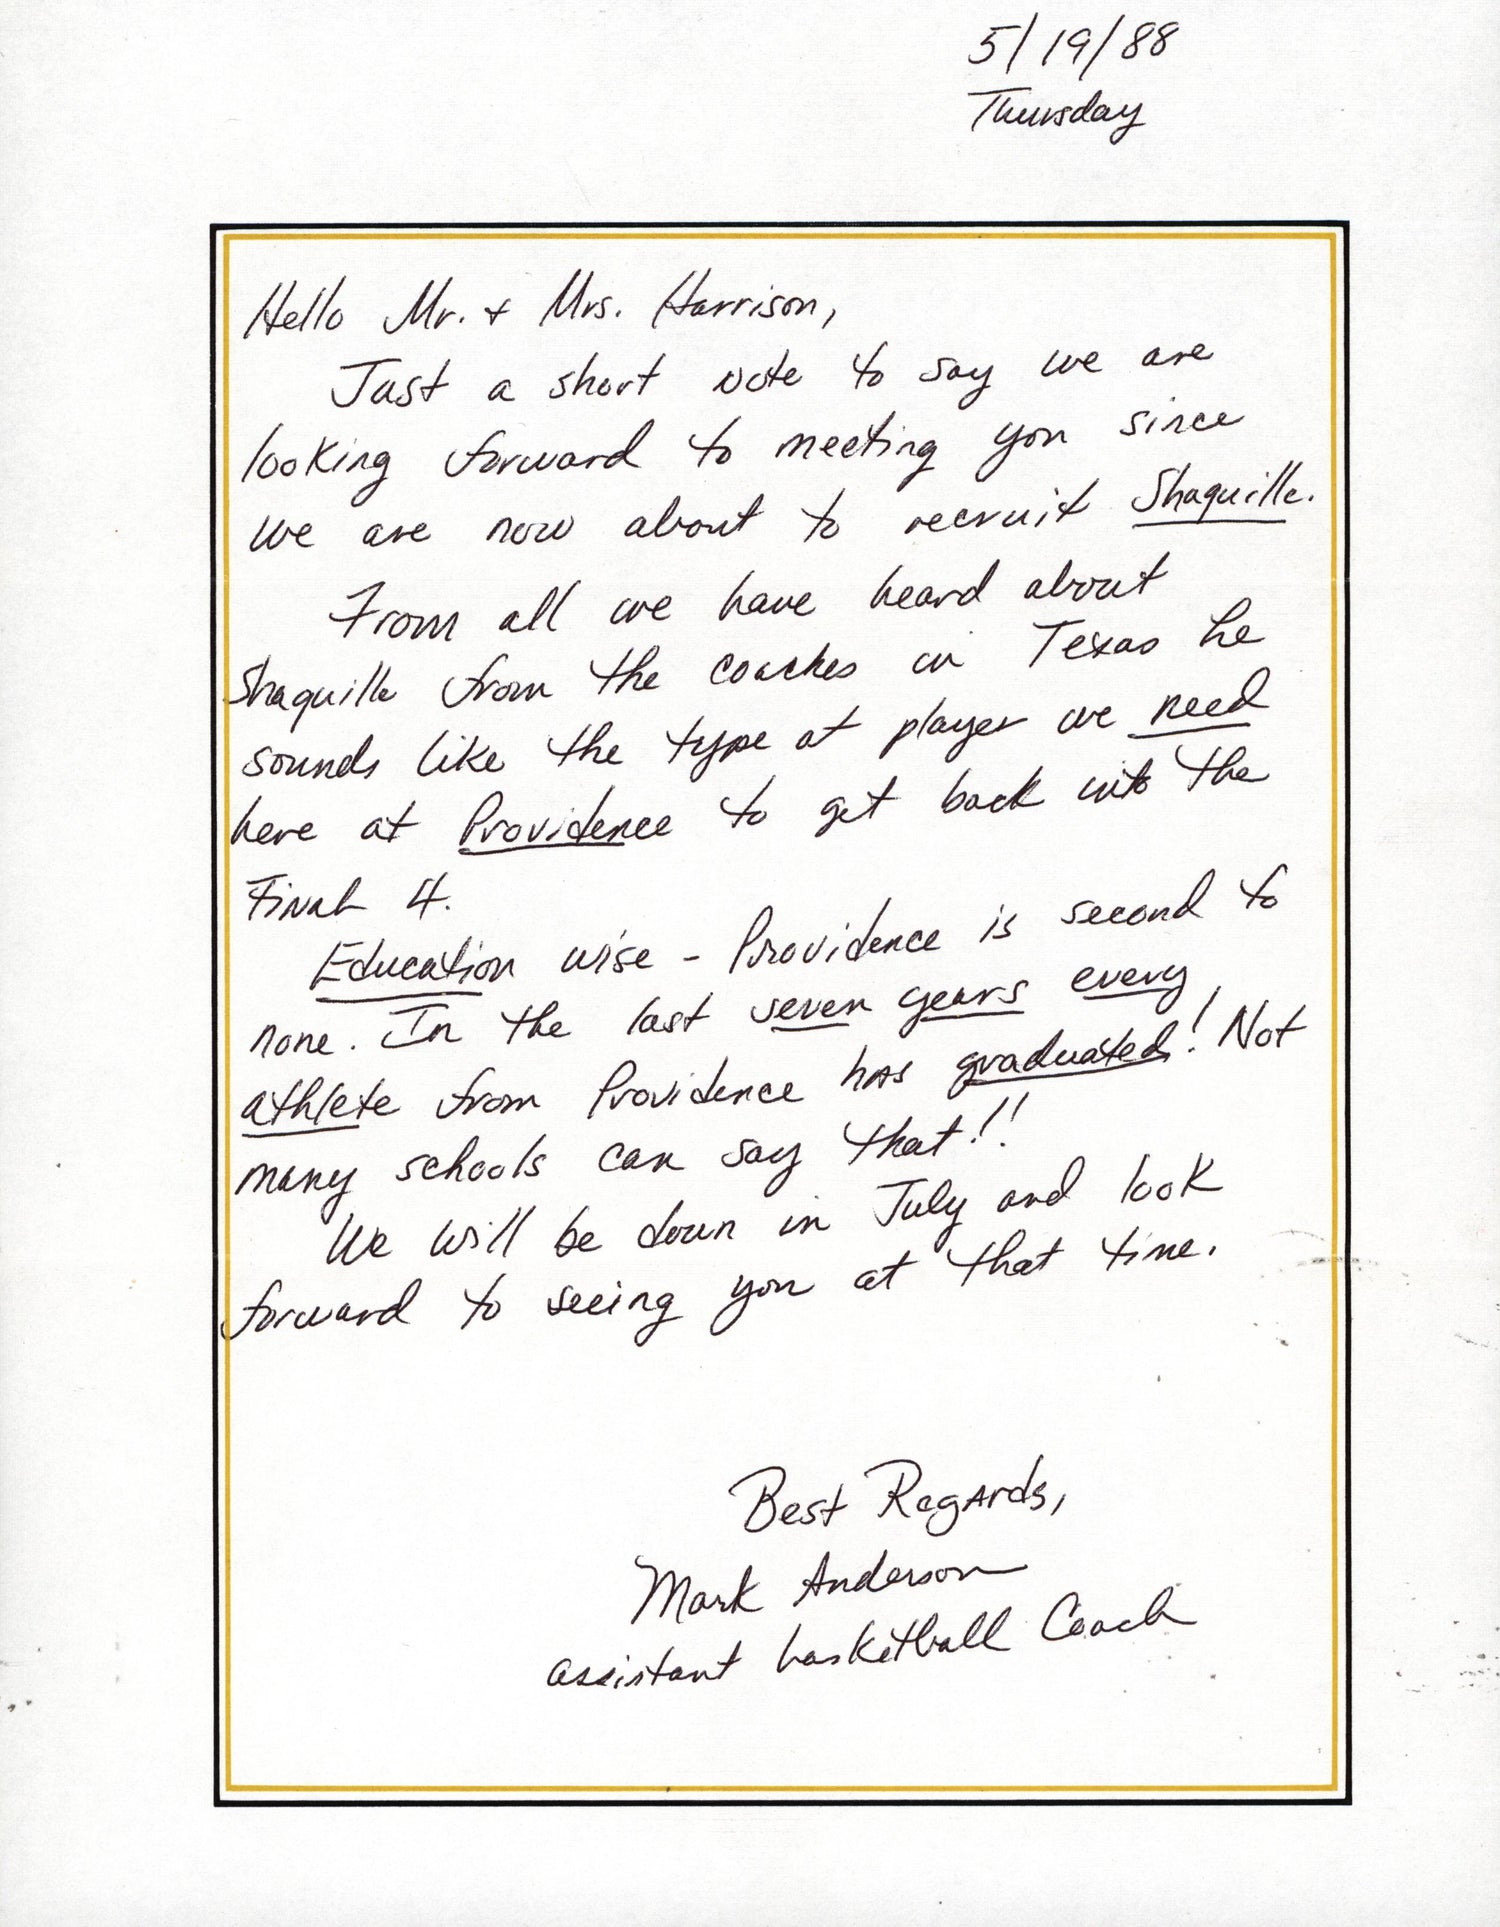 5/19/88
Thursday
Hello Mr. + Mrs. Harrison,
Just a short note to say we are
looking forward to meeting you since
we are now about to recruit Shaquille.
From all we have heard about
Shaquille from the coaches in Texas he
sounds like the type of player we need
here at Providence to get back into the
Final 4.
Education wise - Providence is second to
none. In the last seven years every
athlete from Providence has graduated! Not
many schools can say that!!
We will be down in July and look
forward to seeing you at that time.
Best Regards,
Mark Anderson
assistant basketball Coach